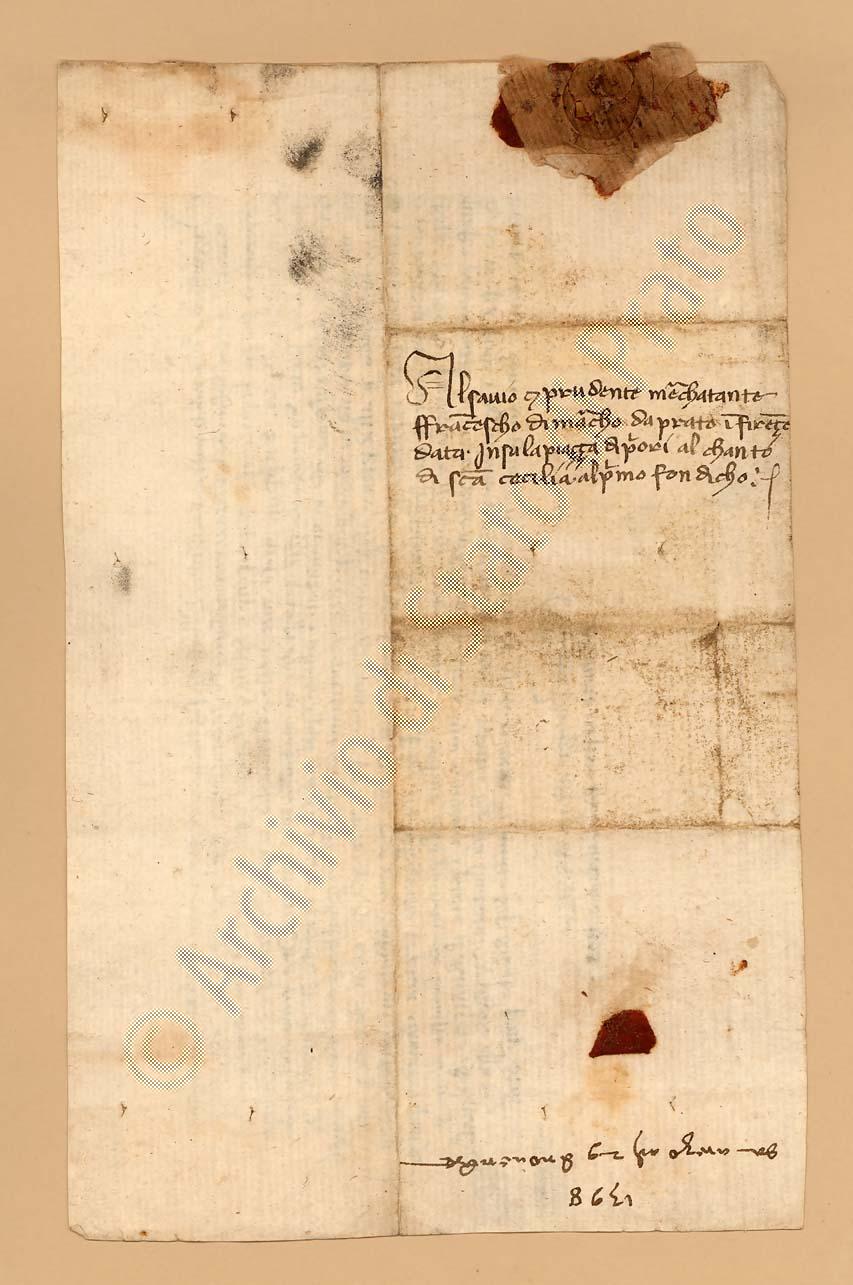 Al savio & prudente merchatante
ffranciescho di marcho da prato in firenze
data. In su la piazza di priori al chanto
di santa cecilia. al primo fondicho.
1398
© Archivio di Stato di Prato